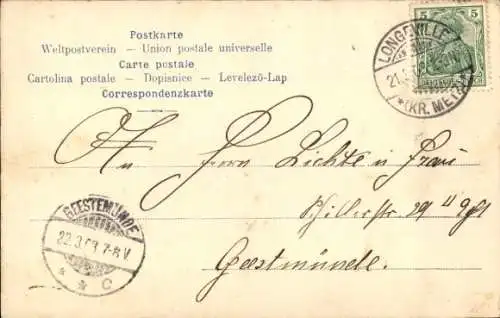 Postkarte
Weltpostverein – Union postale universelle
Carte postale
Cartolina postale – Dopisnice – Levelező-Lap
Correspondenzkarte
5 5
LONGEVILLE
*(KR. METZ)
An Herrn Lichte u Frau
Schillerstr 29 II
Geestemünde.
GEESTEMÜNDE
22.3.03 7-8V
* * C